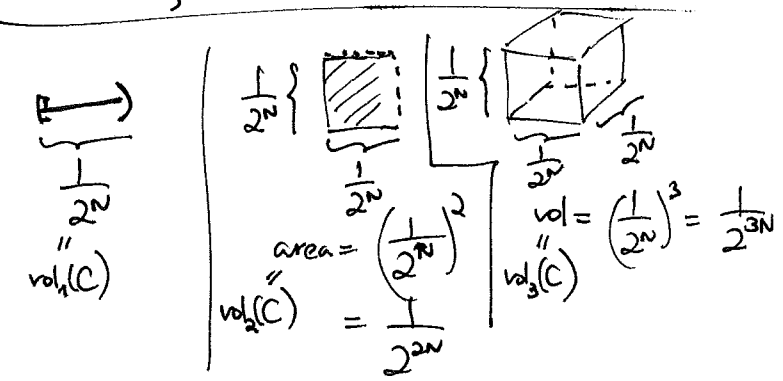 1/2^N
"
vol₁(C)
1/2^N {
1/2^N
area = (1/2^N)^2
"
vol₂(C) = 1/2^{2N}
1/2^N {
1/2^N 1/2^N
vol = (1/2^N)^3 = 1/2^{3N}
"
vol₃(C)